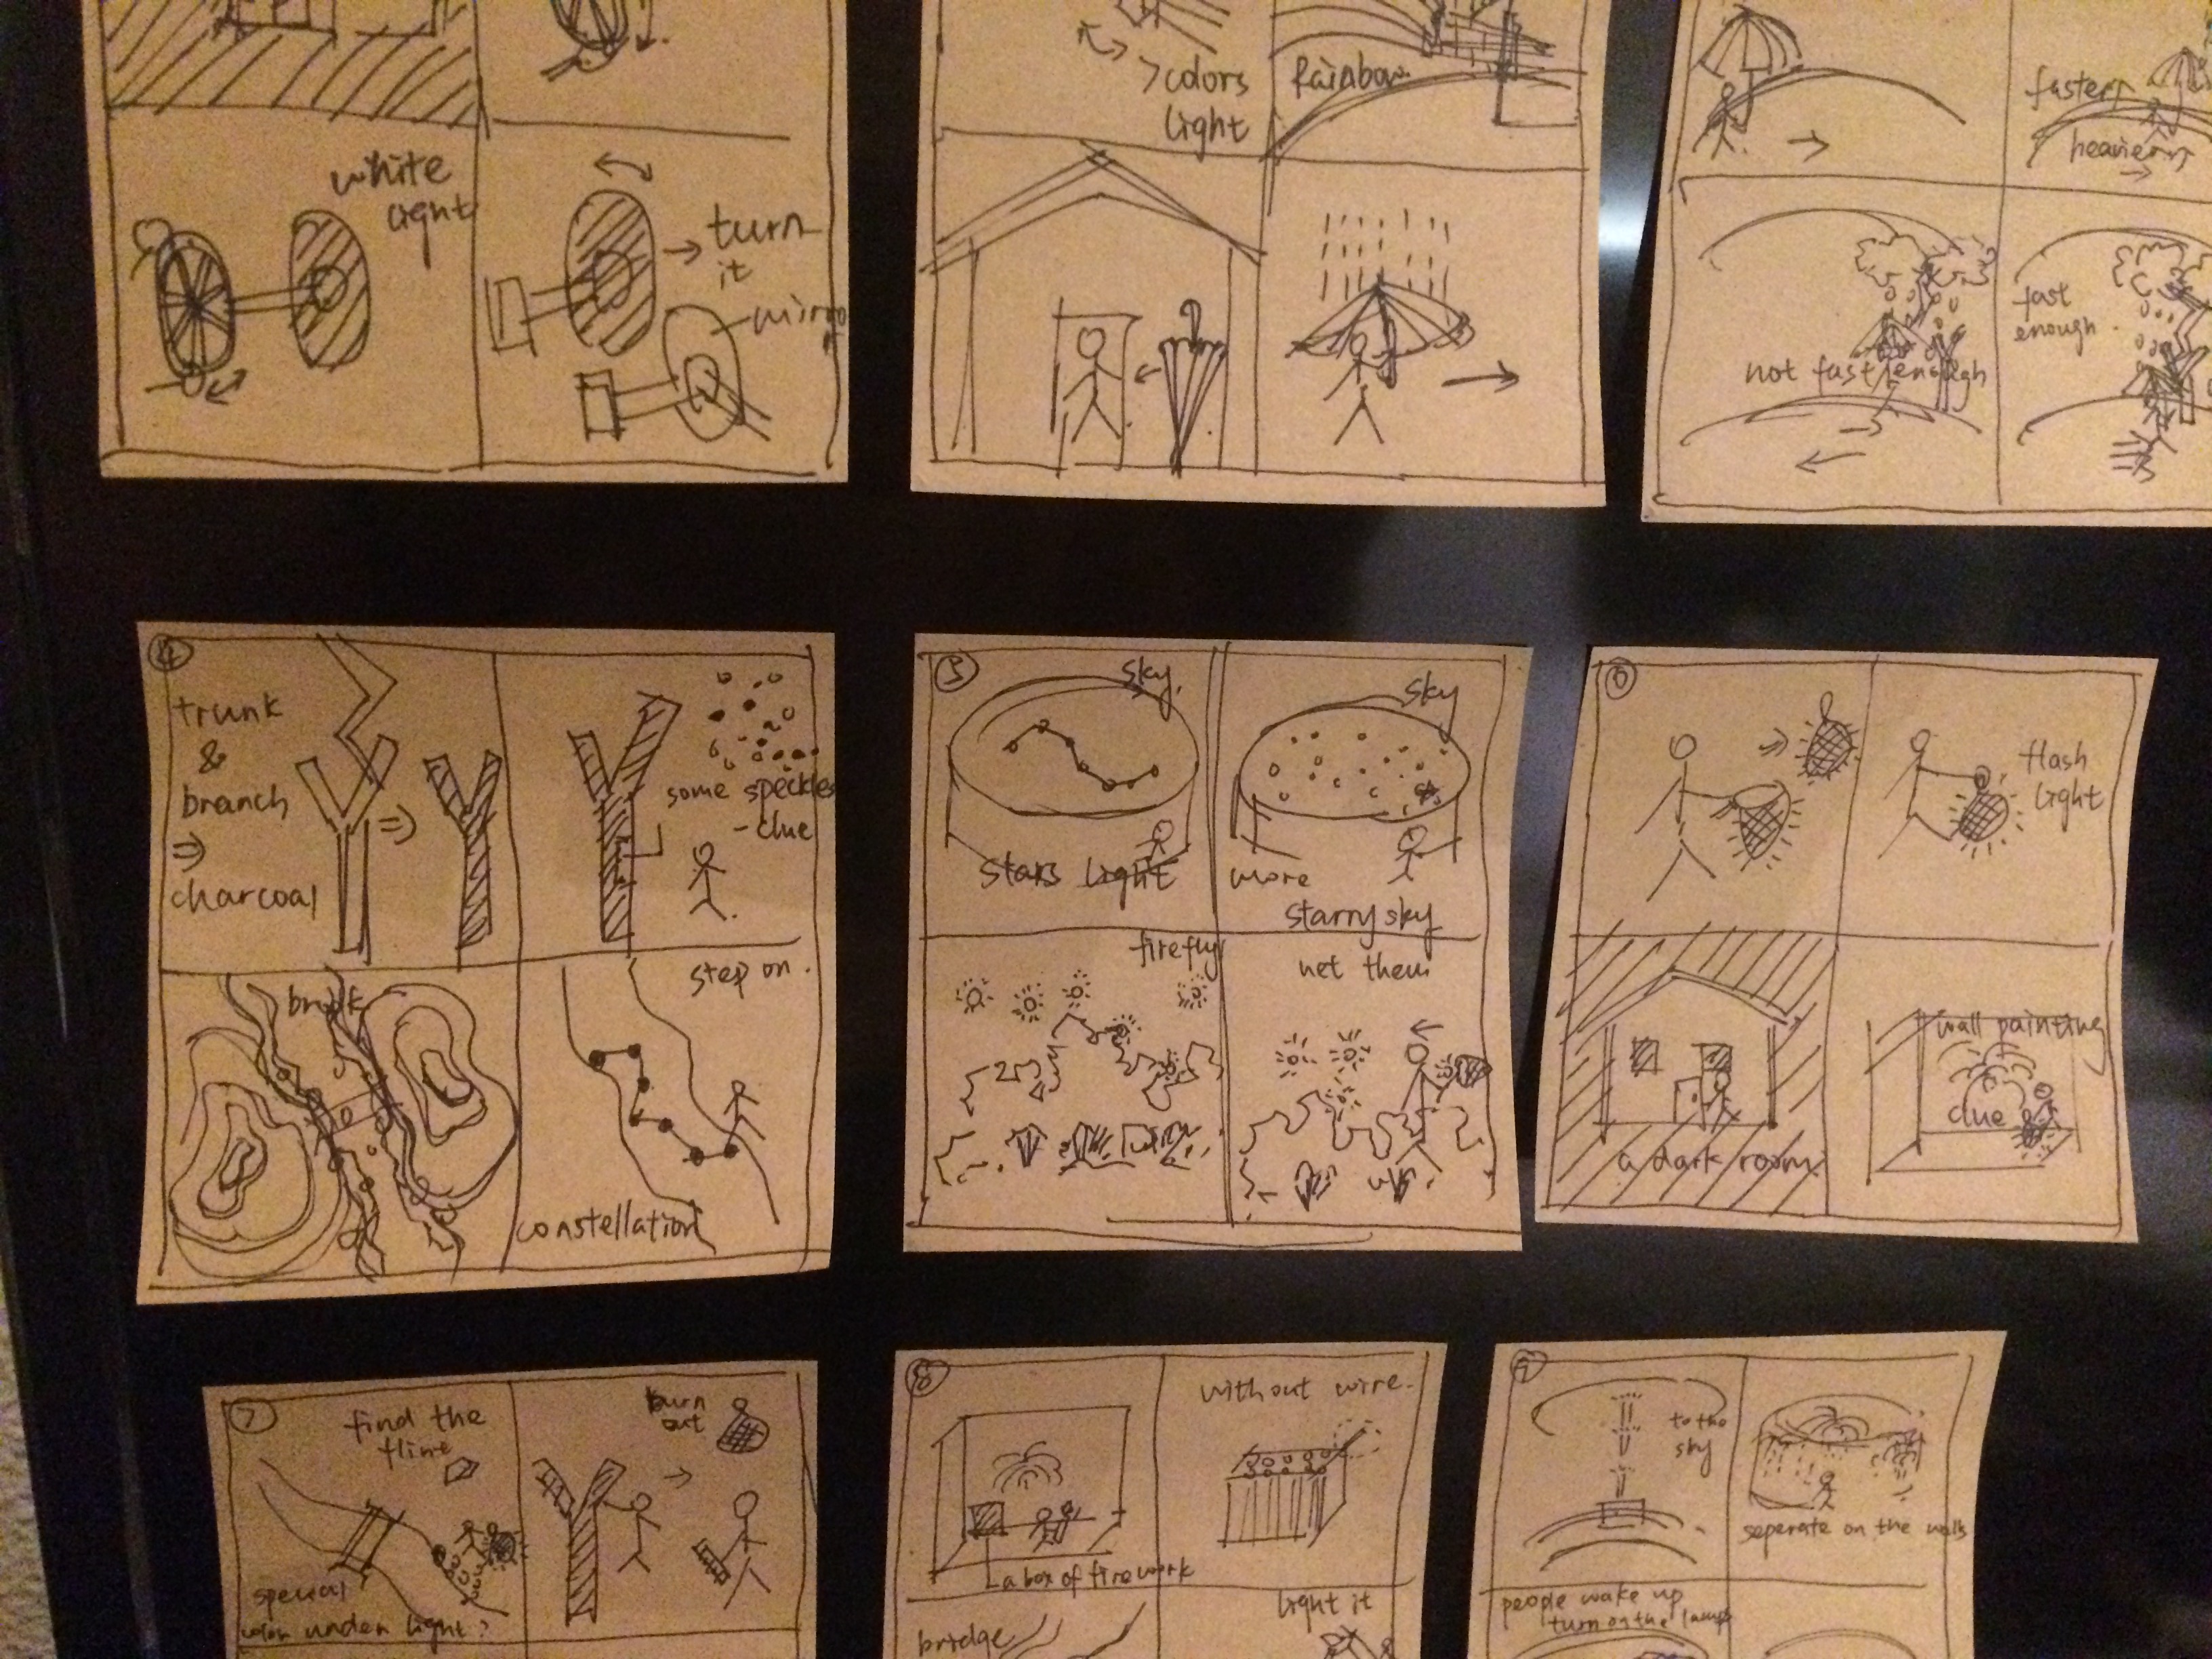 white
light
turn
it
mirro
7 colors
light
Rainbow
faster
heavier
not fast enough
fast
enough
4
trunk
&
branch
⇒
charcoal
some speckles
- clue
brook
step on.
constellation
5
sky
stars light
sky
more
starry sky
firefly
net them
6
flash
light
a dark room
wall painting
clue
7
find the
flint
special
color under light?
burn
out
8
a box of firework
without wire.
bridge
light it
9
to the
sky
seperate on the walls
people wake up
turn on the lamp